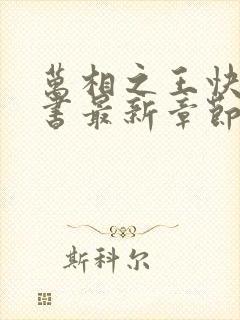 萬相之王快
書最新章節
斯科尔